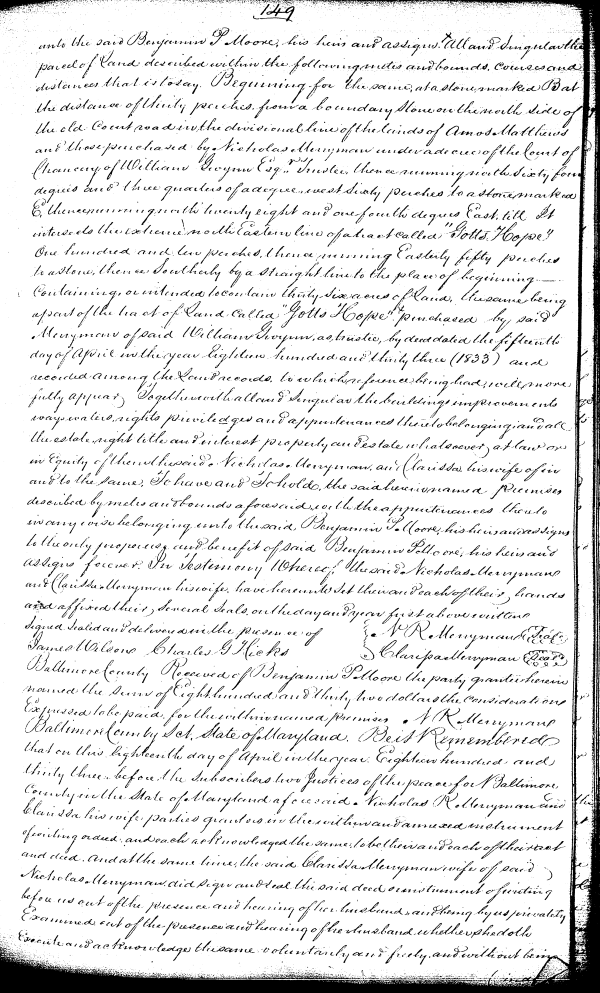 149
unto the said Benjamin P Moore, his heirs and assigns, All and Singular the
parcel of Land described within the following metes and bounds, courses and
distances that is to say. Beginning for the same, at a stone marked B at
the distance of thirty perches, from a boundary stone on the north side of
the old Court road in the divisional line of the lands of Amos Matthews
and those purchased by Nicholas Merryman under a decree of the Court of
Chancery of William Gwynn Esqr Trustee, thence running north Sixty four
degrees and three quarters of a degree, west Sixty perches to a stone, marked
E, thence running north twenty eight and one fourth degrees East, till It
intersects the extreme north Eastern line of a tract called "Gotts Hope"
One hundred and ten perches, thence running Easterly fifty perches
to a stone, thence Southerly by a straight line to the place of beginning —
Containing, or intended to contain thirty six acres of Land, the same being
a part of the tract of Land called "Gotts Hope" purchased by said
Merryman of said William Gwynn, as trustee, by deed dated the fifteenth
day of April in the year Eighteen hundred and thirty three (1833) and
recorded among the Land records, to which, reference being had, will more
fully appear, Together with all and Singular the buildings improvements
ways waters, rights priviledges and appurtenances thereto belonging and all
the estate, right title and interest property and estate whatsoever, at law or
in Equity of them the said Nicholas Merryman, and Clarissa his wife of in
and to the same, To have and To hold, the said herein named premises
described by metes and bounds aforesaid, with the appurtenances thereto
in any wise belonging unto the said Benjamin P Moore, his heirs and assigns
to the only proper use, and benefit of said Benjamin P Moore, his heirs and
assigns forever. In Testimony Whereof, the said Nicholas Merryman
and Clarissa Merryman his wife, have hereunto Set their and each of their, hands
and affixed their, Several Seals, on the day and year first above written
Signed Sealed and delivered in the presence of N R Merryman (Seal)
James Wilson Charles G Hicks Clarissa Merryman (Seal)
Baltimore County Received of Benjamin P Moore the party grantee herein
named the Sum of Eight hundred and thirty two dollars the consideration
Expressed to be paid, for the within named premises N R Merryman
Baltimore County Sct, State of Maryland, Be it Remembered
that on this Eighteenth day of April in the year, Eighteen hundred and
thirty three, before the Subscribers two Justices of the peace for Baltimore
County in the State of Maryland aforesaid, Nicholas R Merryman and
Clarissa his wife parties grantors in the within and annexed instrument
of writing or deed, and each acknowledged the same, to be their and each of their act
and deed, and at the same time, the said Clarissa Merryman wife of said
Nicholas Merryman, did sign and seal the said deed or instrument of writing
before us out of the presence and hearing of her husband, and being by us privately
Examined out of the presence and hearing of her husband, whether she doth
Execute and acknowledge the same voluntarily and freely, and without being